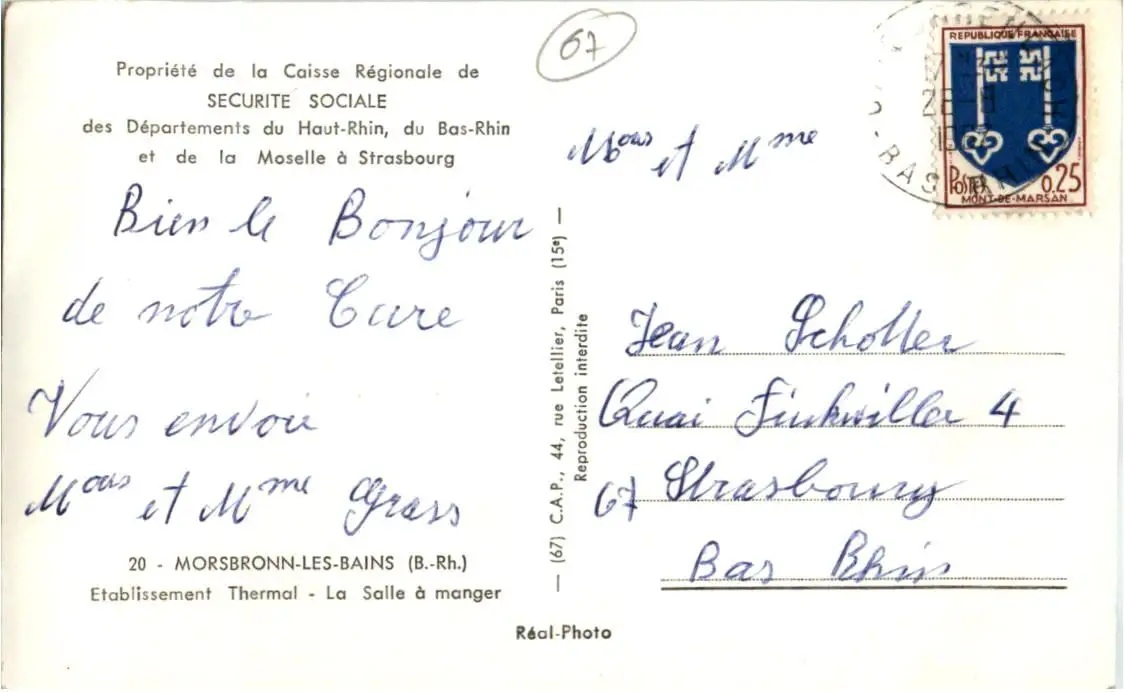 67
Propriété de la Caisse Régionale de
SECURITE SOCIALE
des Départements du Haut-Rhin, du Bas-Rhin
et de la Moselle à Strasbourg
Bien le Bonjour
de notre Cure
Vous envoie
Mous et Mme Grass
20 - MORSBRONN-LES-BAINS (B.-Rh.)
Etablissement Thermal - La Salle à manger
— (67) C.A.P., 44, rue Letellier, Paris (15e) —
Reproduction interdite
Réal-Photo
REPUBLIQUE FRANÇAISE
POSTES 0.25
MONT-DE-MARSAN
28-8
BAS RHIN
Mous et Mme
Jean Scholler
Quai Finkwiller 4
67 Strasbourg
Bas Rhin